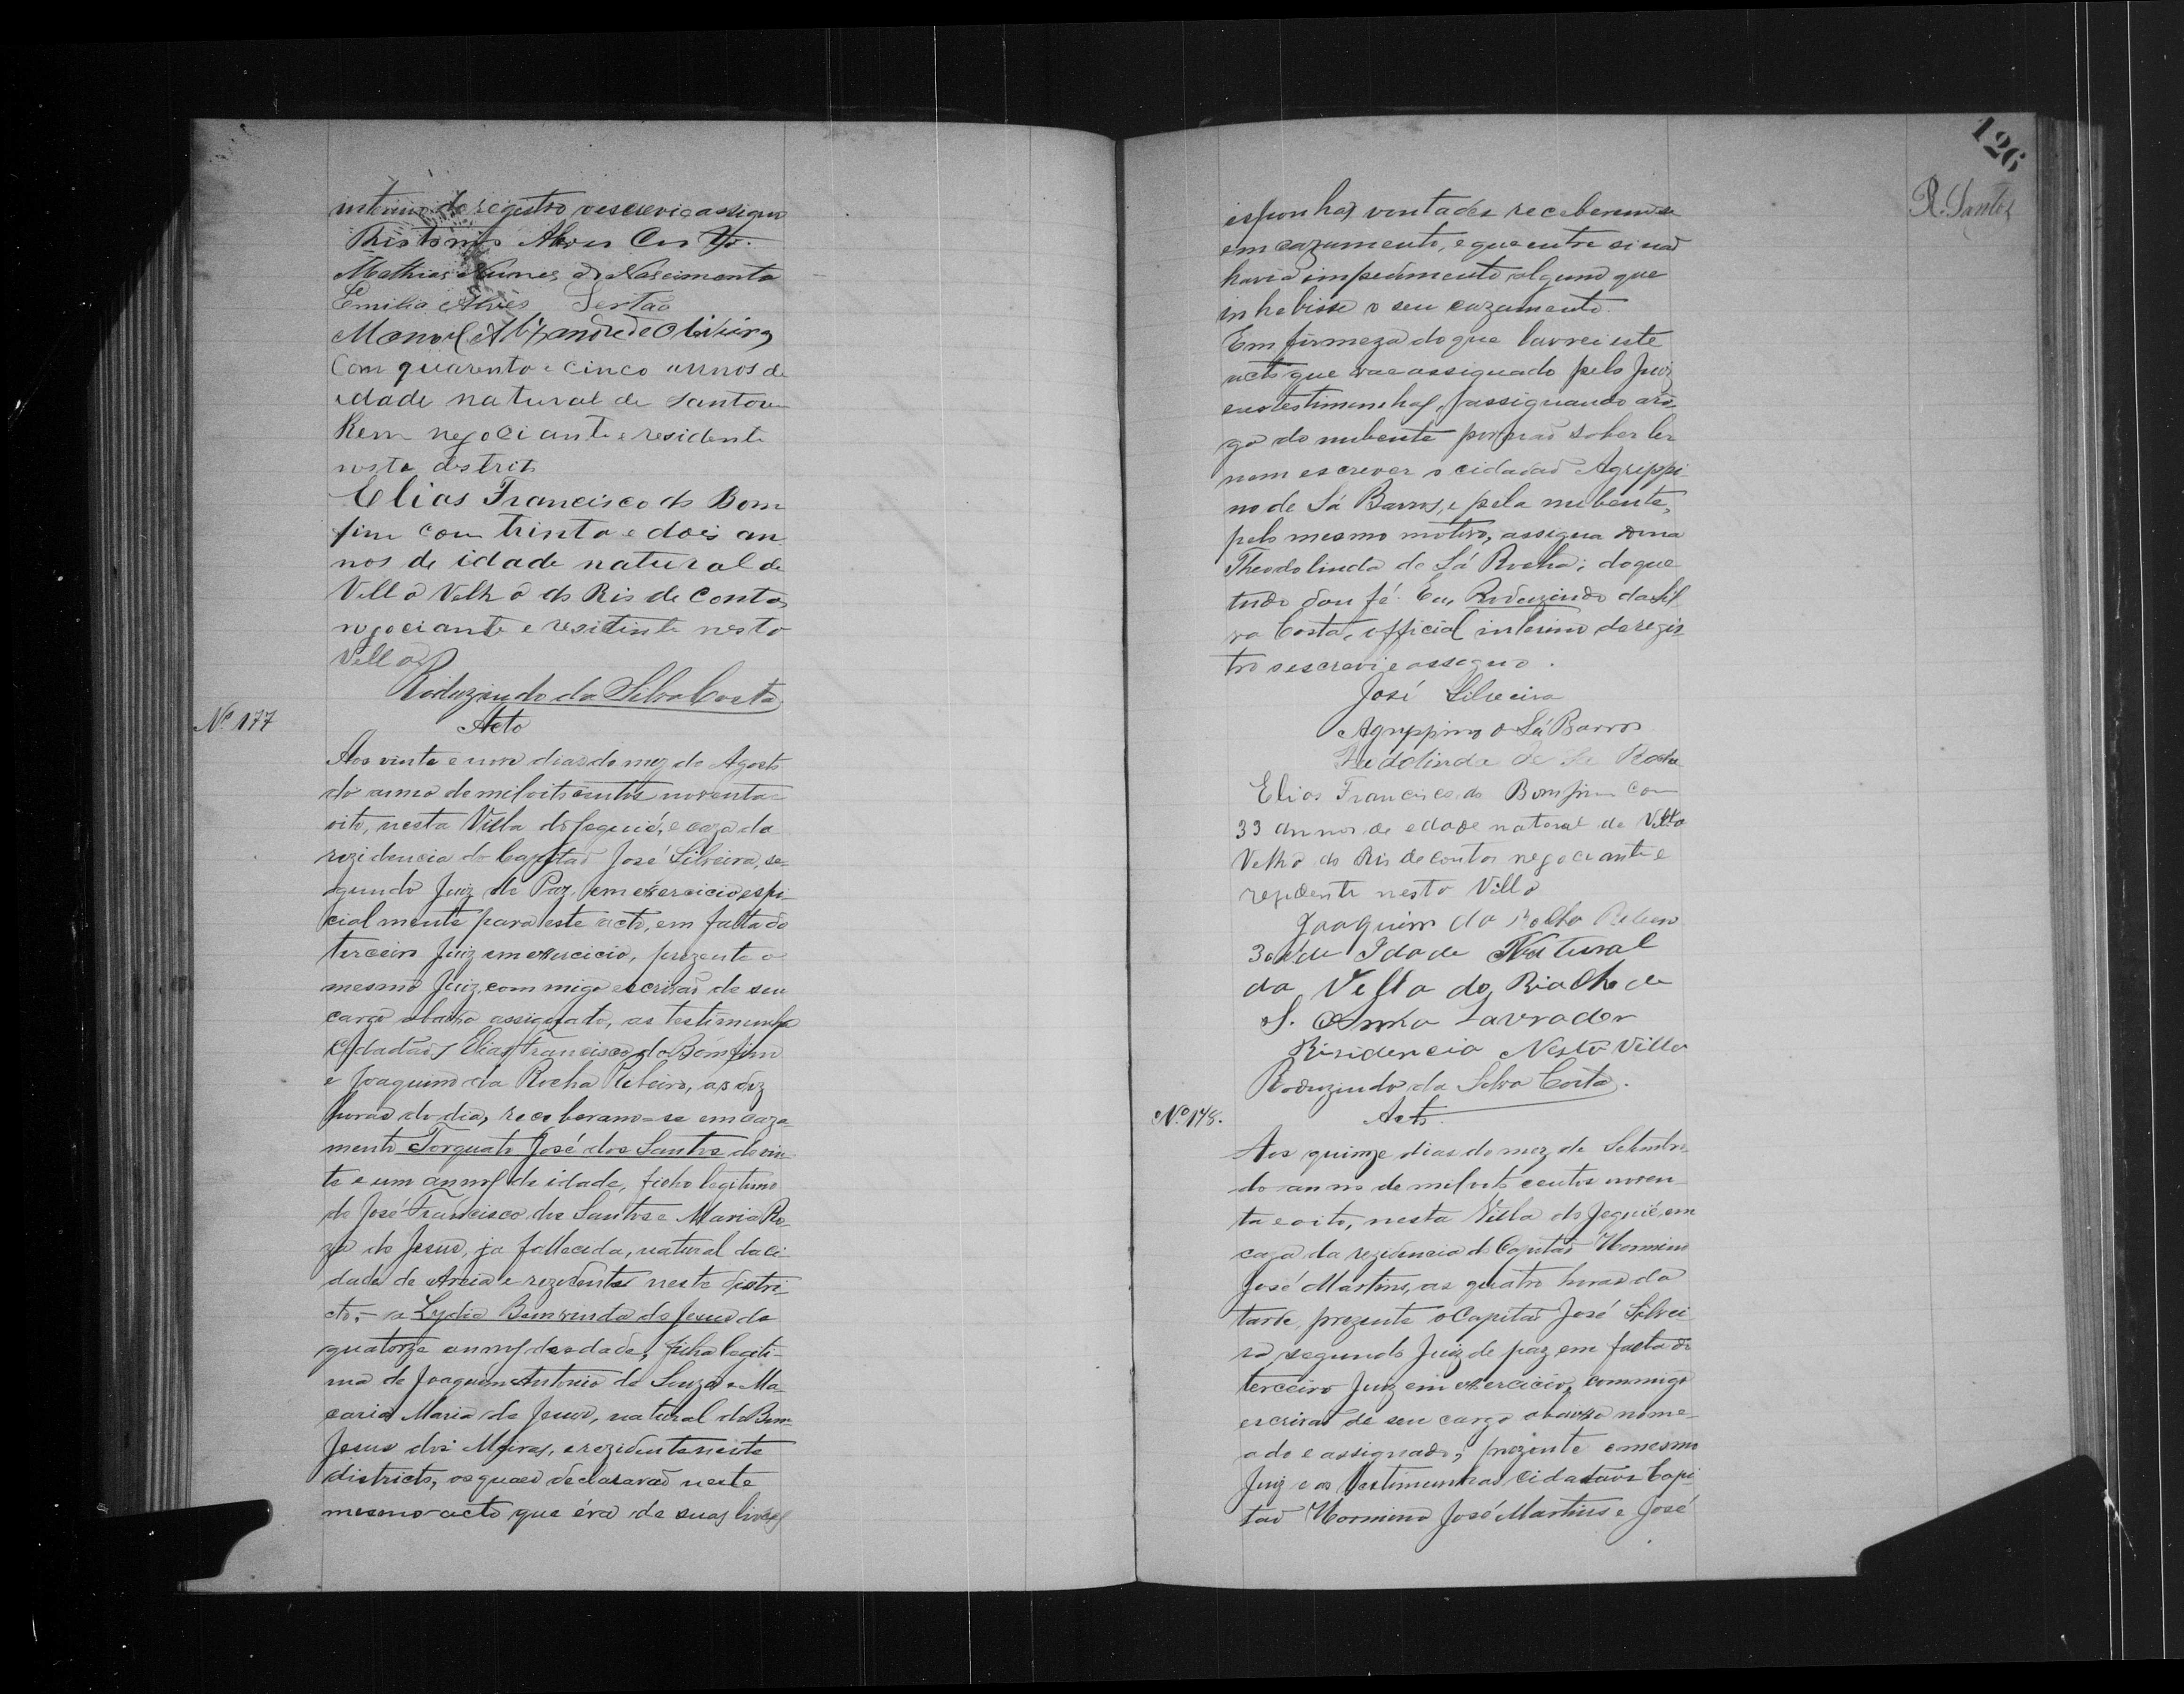 interino do registro o escrevi e assigno
Alves
Mathias Nunes do Nascimento
Emilia Alves Sertão
Manoel Alixandre de Oliveira
Com quarenta e cinco annos de
idade natural de Santa
negociante e residente
nesta destrito
Elias Francisco do Bom
fim com trinta e dois an
nos de idade natural de
Villa Velha do Rio de Contas
negociante e resitente nesta
Villa
Roduzindo da Silva Costa
Nº 177
Acto
Aos vinte e nove dias do mez de Agosto
do anno de mil oito centos noventa e
oito, nesta Villa do Jequié, e caza da
rezidencia do Capitão José Silveira, se-
gundo Juiz de Paz, em exercicio, espi-
cialmente para este acto, em falta do
terceiro Juiz em exercicio, prezente o
mesmo Juiz, commigo escrivão de seu
cargo abaixo assignado, as testimunhas
Cidadãos Elias Francisco do Bomfim
e Joaquim da Rocha Ribeiro, as dez
horas do dia, receberam-se em caza-
mento Torquato José dos Santos de vin-
te e um annos de idade, filho legitimo
de José Francisco dos Santos e Maria Ro-
za de Jesus, ja fallecida, natural da ci-
dade de Areia e rezidente neste distri-
cto, - a Lydia Bemvinda de Jesus de
quatorze annos de edade, filha legiti-
ma de Joaquim Antonio de Souza e Ma-
caria Maria de Jesus, natural do Bom
Jesus dos Meiras, e rezidente neste
districto, os quaes declararão neste
mesmo acto que éra de suas livres
126
R. Santos
esponhas vontades receberem-se
em cazamento, e que entre si não
havia impedimento algum que
inhebisse o seu cazamento.
Em firmeza do que lavrei este
acto que vae assignado pelo Juiz
e as testimunhas, assignando aro-
go do nubente por não saber ler
nem escrever o cidadão Agrippi-
no de Sá Barros, e pela nubente,
pelo mesmo motivo, assigna dona
Theodolinda de Sá Rocha; do que
tudo dou fé. Eu, Roduzindo da Sil-
va Costa, official interino do regis-
tro o escrevi e assegno.
José Silveira
Agrippino de Sá Barros
de Sá Rocha
Elias Francisco do Bomfim com
33 annos de edade natural de Villa
Velha do Rio de contas negociante e
rezidente nesta Villa
Joaquim da Rocha Ribeiro
Idade Natural
da Villa do Riacho de
S. Anna Lavrador
Risidencia Nesta Villa
Roduzindo da Silva Costa.
Nº 178.
Acto
Aos quinze dias do mez de Setembro
do anno de mil oito centos noven-
ta e oito, nesta Villa do Jequié, em
caza da rezidencia do Capitão Hormino
José Martins, as quatro horas da
tarde, prezente o Capitão José Silvei-
ra, segundo Juiz de paz em falta do
terceiro Juiz em exercicio, commigo
escrivão de seu cargo abaixo nome-
ado e assignado, prezente o mesmo
Juiz e as testimunhas cidadãos Capi-
tão Hormino José Martins e José